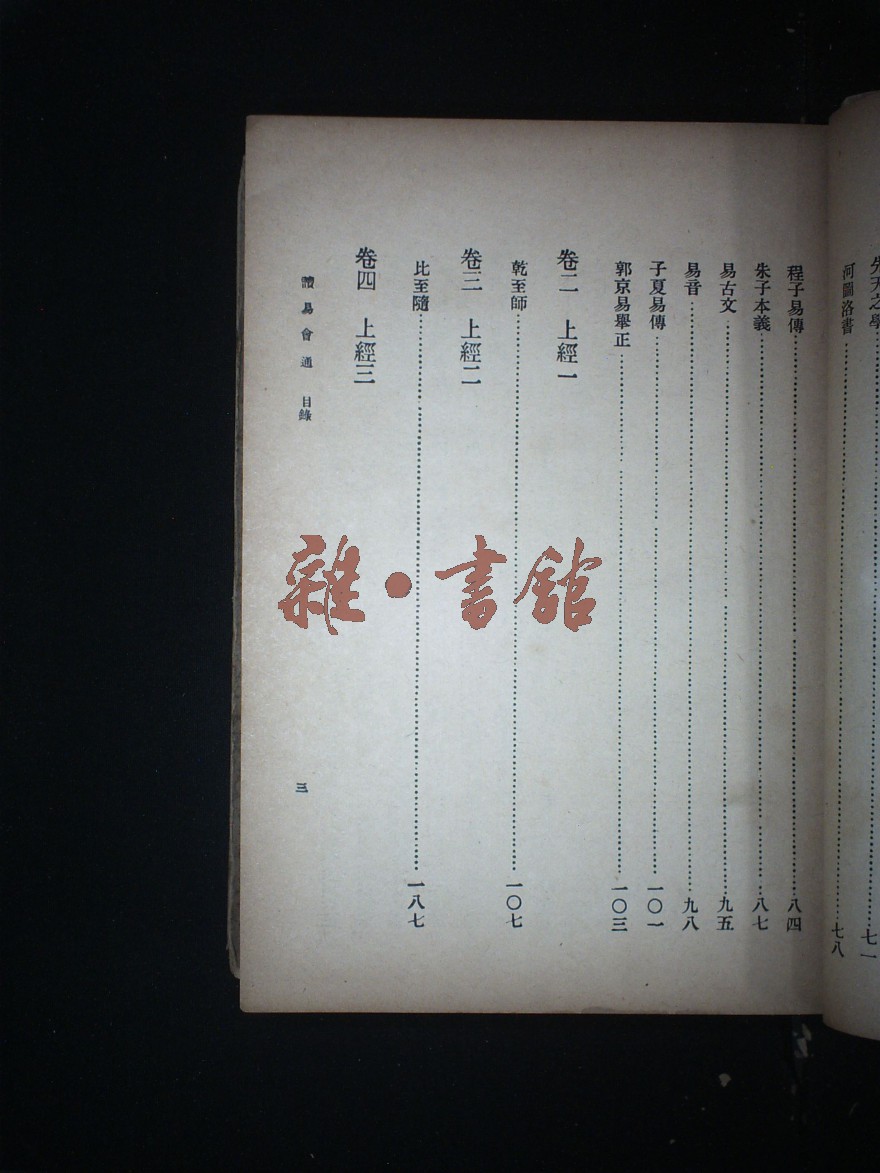 先天之學……七一
河圖洛書……七八
程子易傳……八四
朱子本義……八七
易古文……九五
易音……九八
子夏易傳……一〇一
郭京易舉正……一〇三
卷二 上經一
乾至師……一〇七
卷三 上經二
比至隨……一八七
卷四 上經三
讀易會通 目錄
三
雜·書館